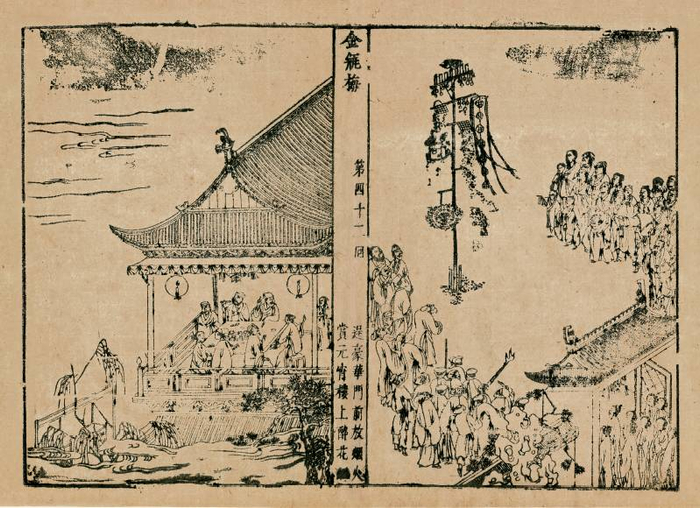 金瓶梅
第四十一回
逞豪華門前放煙火
賞元宵樓上醉花